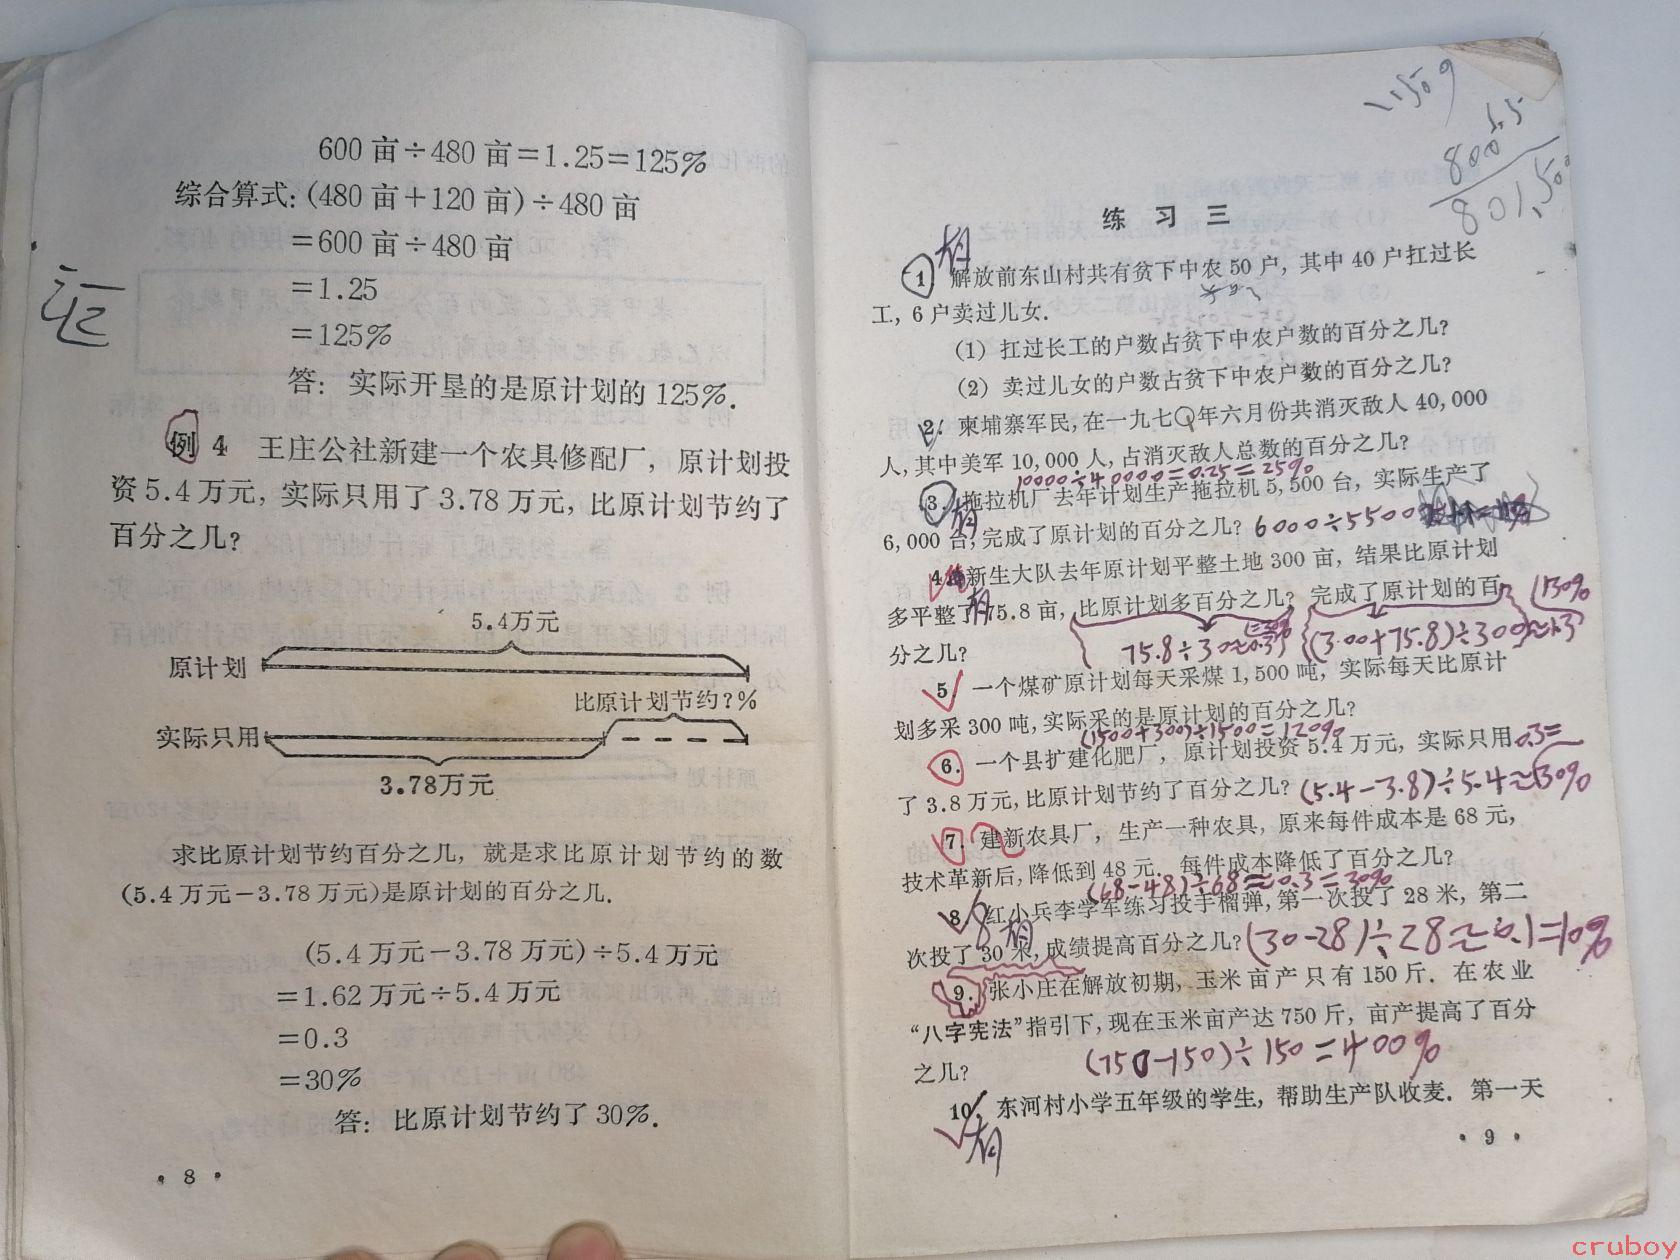 600 亩÷480 亩=1.25=125%
综合算式: (480 亩+120 亩)÷480 亩
=600 亩÷480 亩
=1.25
=125%
答: 实际开垦的是原计划的 125%.
例 4 王庄公社新建一个农具修配厂, 原计划投
资 5.4 万元, 实际只用了 3.78 万元, 比原计划节约了
百分之几?
5.4万元
原计划
比原计划节约?%
实际只用
3.78万元
求比原计划节约百分之几, 就是求比原计划节约的数
(5.4 万元-3.78 万元)是原计划的百分之几.
(5.4 万元-3.78 万元)÷5.4 万元
=1.62 万元÷5.4 万元
=0.3
=30%
答: 比原计划节约了 30%.
• 8 •
练 习 三
1. 解放前东山村共有贫下中农 50 户, 其中 40 户扛过长
工, 6 户卖过儿女.
(1) 扛过长工的户数占贫下中农户数的百分之几?
(2) 卖过儿女的户数占贫下中农户数的百分之几?
2. 柬埔寨军民, 在一九七〇年六月份共消灭敌人 40,000
人, 其中美军 10,000 人, 占消灭敌人总数的百分之几?
10000÷40000=0.25=25%
3. 拖拉机厂去年计划生产拖拉机 5,500 台, 实际生产了
6,000 台, 完成了原计划的百分之几? 6000÷5500
4. 新生大队去年原计划平整土地 300 亩, 结果比原计划
多平整了 75.8 亩, 比原计划多百分之几? 完成了原计划的百
分之几?
75.8÷300≈0.3
(300+75.8)÷300≈1.3
130%
5. 一个煤矿原计划每天采煤 1,500 吨, 实际每天比原计
划多采 300 吨, 实际采的是原计划的百分之几?
(1500+300)÷1500=120%
6. 一个县扩建化肥厂, 原计划投资 5.4 万元, 实际只用
了 3.8 万元, 比原计划节约了百分之几? (5.4-3.8)÷5.4≈0.3=30%
7. 建新农具厂, 生产一种农具, 原来每件成本是 68 元,
技术革新后, 降低到 48 元. 每件成本降低了百分之几?
(68-48)÷68≈0.3=30%
8. 红小兵李学军练习投手榴弹, 第一次投了 28 米, 第二
次投了 30 米, 成绩提高百分之几? (30-28)÷28≈0.1=10%
9. 张小庄在解放初期, 玉米亩产只有 150 斤. 在农业
“八字宪法”指引下, 现在玉米亩产达 750 斤, 亩产提高了百分
之几?
(750-150)÷150=400%
10. 东河村小学五年级的学生, 帮助生产队收麦. 第一天
• 9 •
cruboy